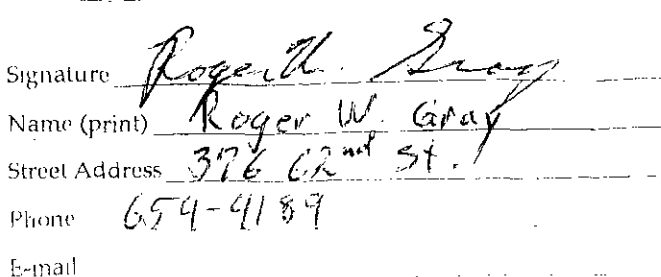 Signature Roger W. Gray
Name (print) Roger W. Gray
Street Address 376 62nd St.
Phone 654-4189
E-mail